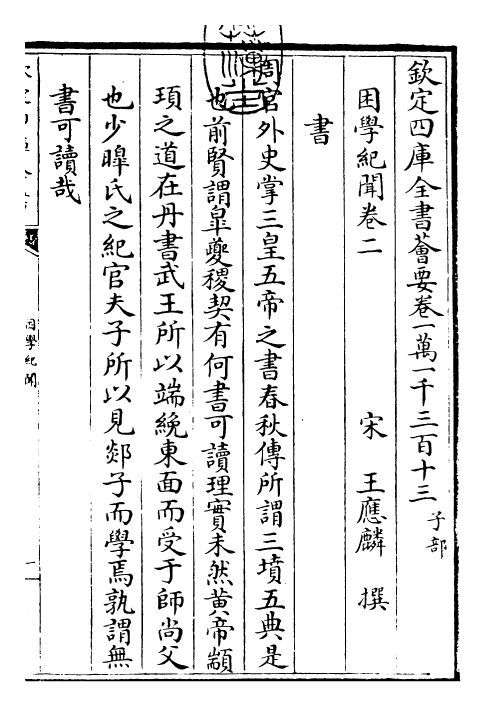 欽定四庫全書薈要卷一萬一千三百十三 子部
困學紀聞卷二
宋 王應麟 撰
書
周官外史掌三皇五帝之書春秋傳所謂三墳五典是
也前賢謂臯夔稷契有何書可讀理實未然黄帝顓
頊之道在丹書武王所以端絻東面而受于師尚父
也少暤氏之紀官夫子所以見郯子而學焉孰謂無
書可讀哉
困學紀聞
一